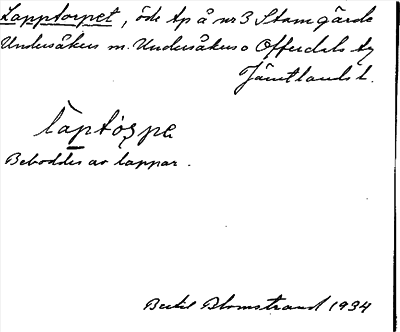 Lapptorpet, öde tp å nr 3 Stamgärde
Undersåkers sn. Undersåkers o Offerdals tg
Jämtlands l.
làptórpe
Beboddes av lappar.
Bertil Blomstrand 1934